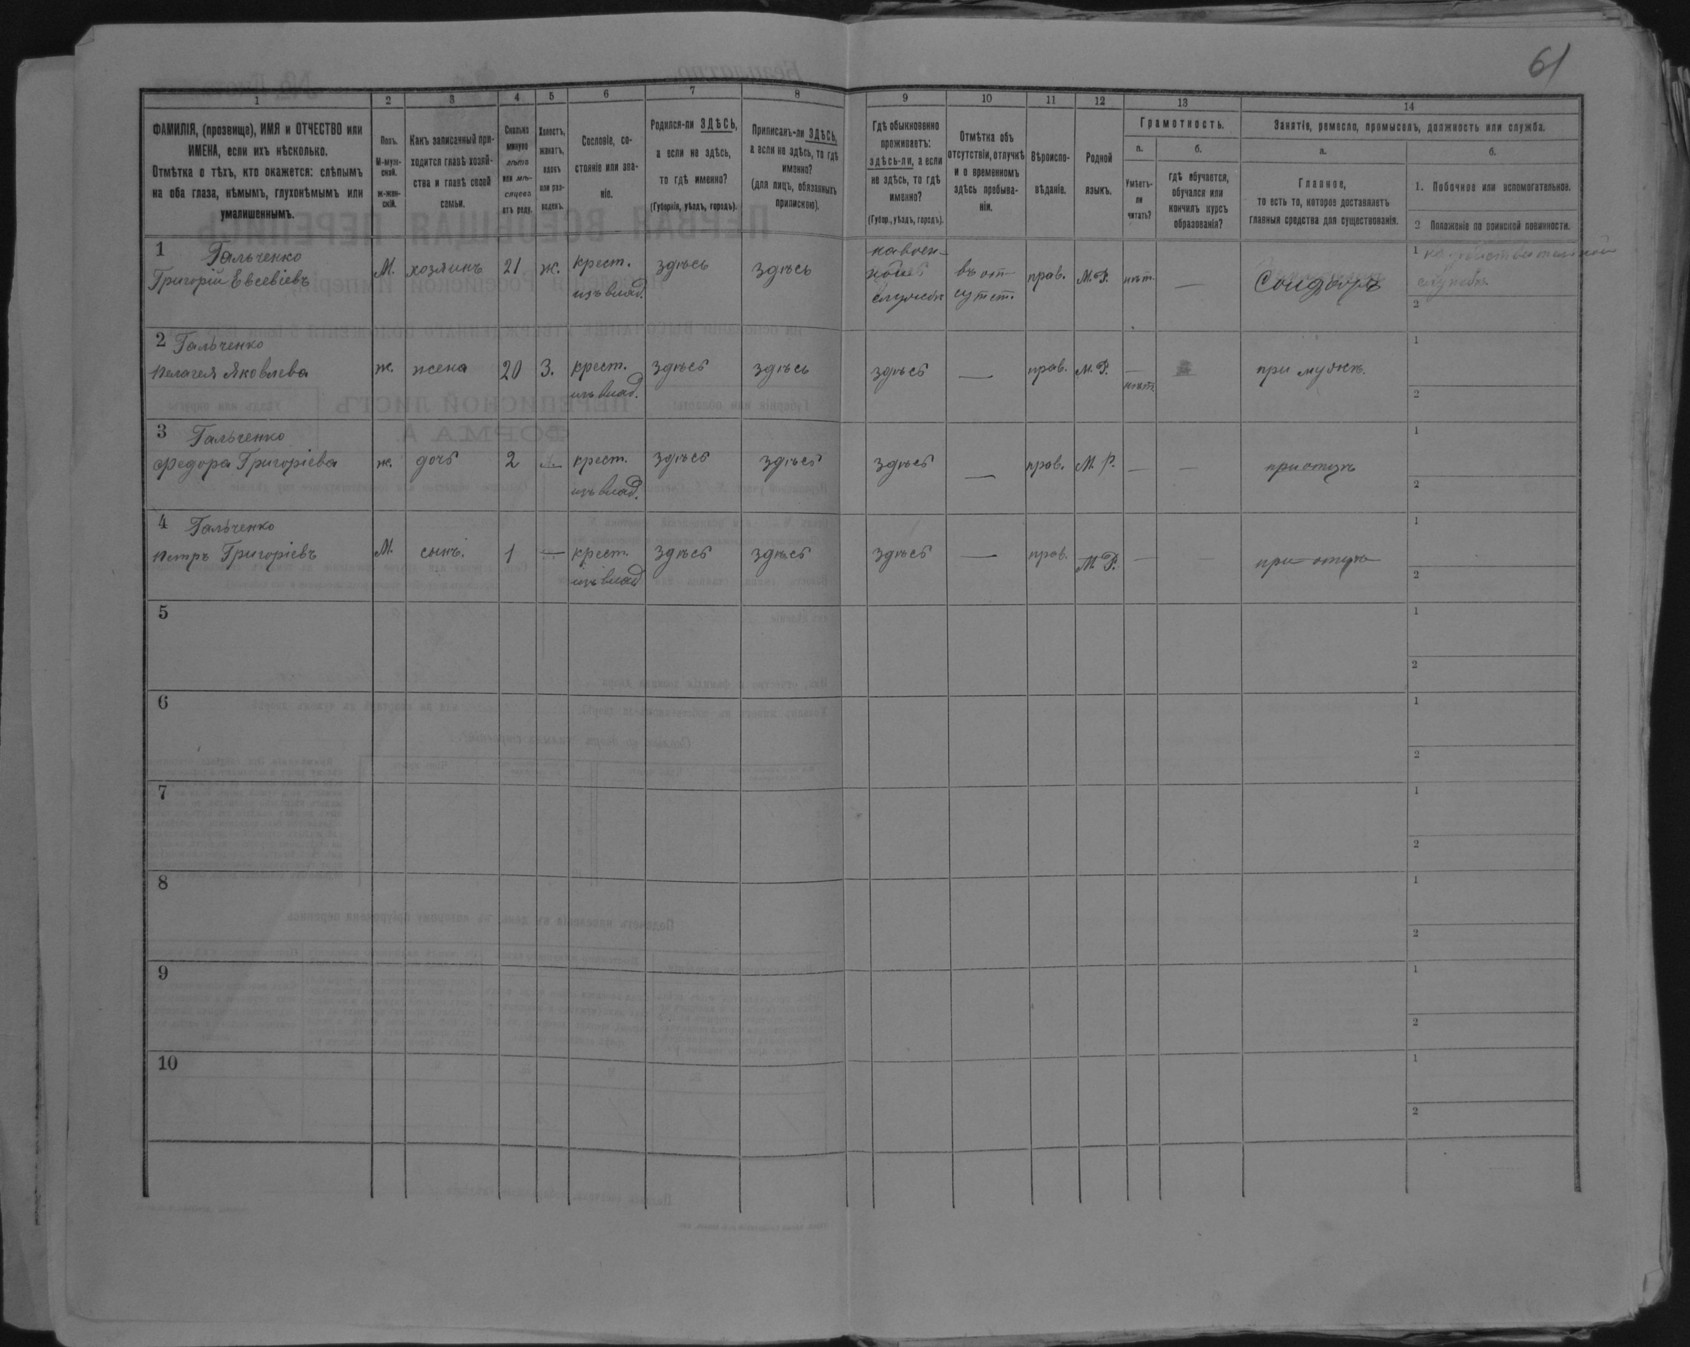 61
1
2
3
4
5
6
7
8
9
10
11
12
13
14
ФАМИЛІЯ, (прозвища), ИМЯ и ОТЧЕСТВО или
ИМЕНА, если ихъ нѣсколько.
Отмѣтка о тѣхъ, кто окажется: слѣпымъ
на оба глаза, нѣмымъ, глухонѣмымъ или
умалишеннымъ.
Полъ.
М-муж-
ской.
Ж-жен-
скій.
Какъ записанный при-
ходится главѣ хозяй-
ства и главѣ своей
семьи.
Сколько
минуло
лѣтъ
или мѣ-
сяцевъ
отъ роду.
Холостъ,
женатъ,
вдовъ
или раз-
веденъ.
Сословіе, со-
стояніе или зва-
ніе.
Родился-ли ЗДѢСЬ,
а если не здѣсь,
то гдѣ именно?
(Губернія, уѣздъ, городъ).
Приписанъ-ли ЗДѢСЬ,
а если не здѣсь, то гдѣ
именно?
(для лицъ, обязанныхъ
припискою).
Гдѣ обыкновенно
проживаетъ:
здѣсь-ли, а если
не здѣсь, то гдѣ
именно?
(Губер., уѣздъ, городъ).
Отмѣтка объ
отсутствіи, отлучкѣ
и о временномъ
здѣсь пребыва-
ніи.
Вѣроиспо-
вѣданіе.
Родной
языкъ.
Грамотность.
а.
Умѣетъ-
ли
читать?
б.
гдѣ обучается,
обучался или
кончилъ курсъ
образованія?
Занятіе, ремесло, промыселъ, должность или служба.
а.
Главное,
то есть то, которое доставляетъ
главныя средства для существованія.
б.
1. Побочное или вспомогательное.
2 Положеніе по воинской повинности.
1 Гальченко
Григорій Евсевіевъ
М.
хозяинъ
21
ж.
крест.
изъ влад.
здѣсь
здѣсь
на воен-
ной
службѣ
въ от-
сутст.
прав.
М. Р.
нѣт.
—
1
2
2 Гальченко
Пелагея Яковлева
ж.
жена
20
З.
крест.
изъ влад.
здѣсь
здѣсь
здѣсь
—
прав.
М. Р.
—
нѣтъ
при мужѣ.
1
2
3 Гальченко
Федора Григоріева
ж.
дочь
2
—
крест.
изъ влад.
здѣсь
здѣсь
здѣсь
—
прав.
М. Р.
—
—
при отцѣ
1
2
4 Гальченко
Петръ Григоріевъ
М.
сынъ.
1
—
крест.
изъ влад.
здѣсь
здѣсь
здѣсь
—
прав.
М. Р.
—
—
при отцѣ
1
2
5
1
2
6
1
2
7
1
2
8
1
2
9
1
2
10
1
2